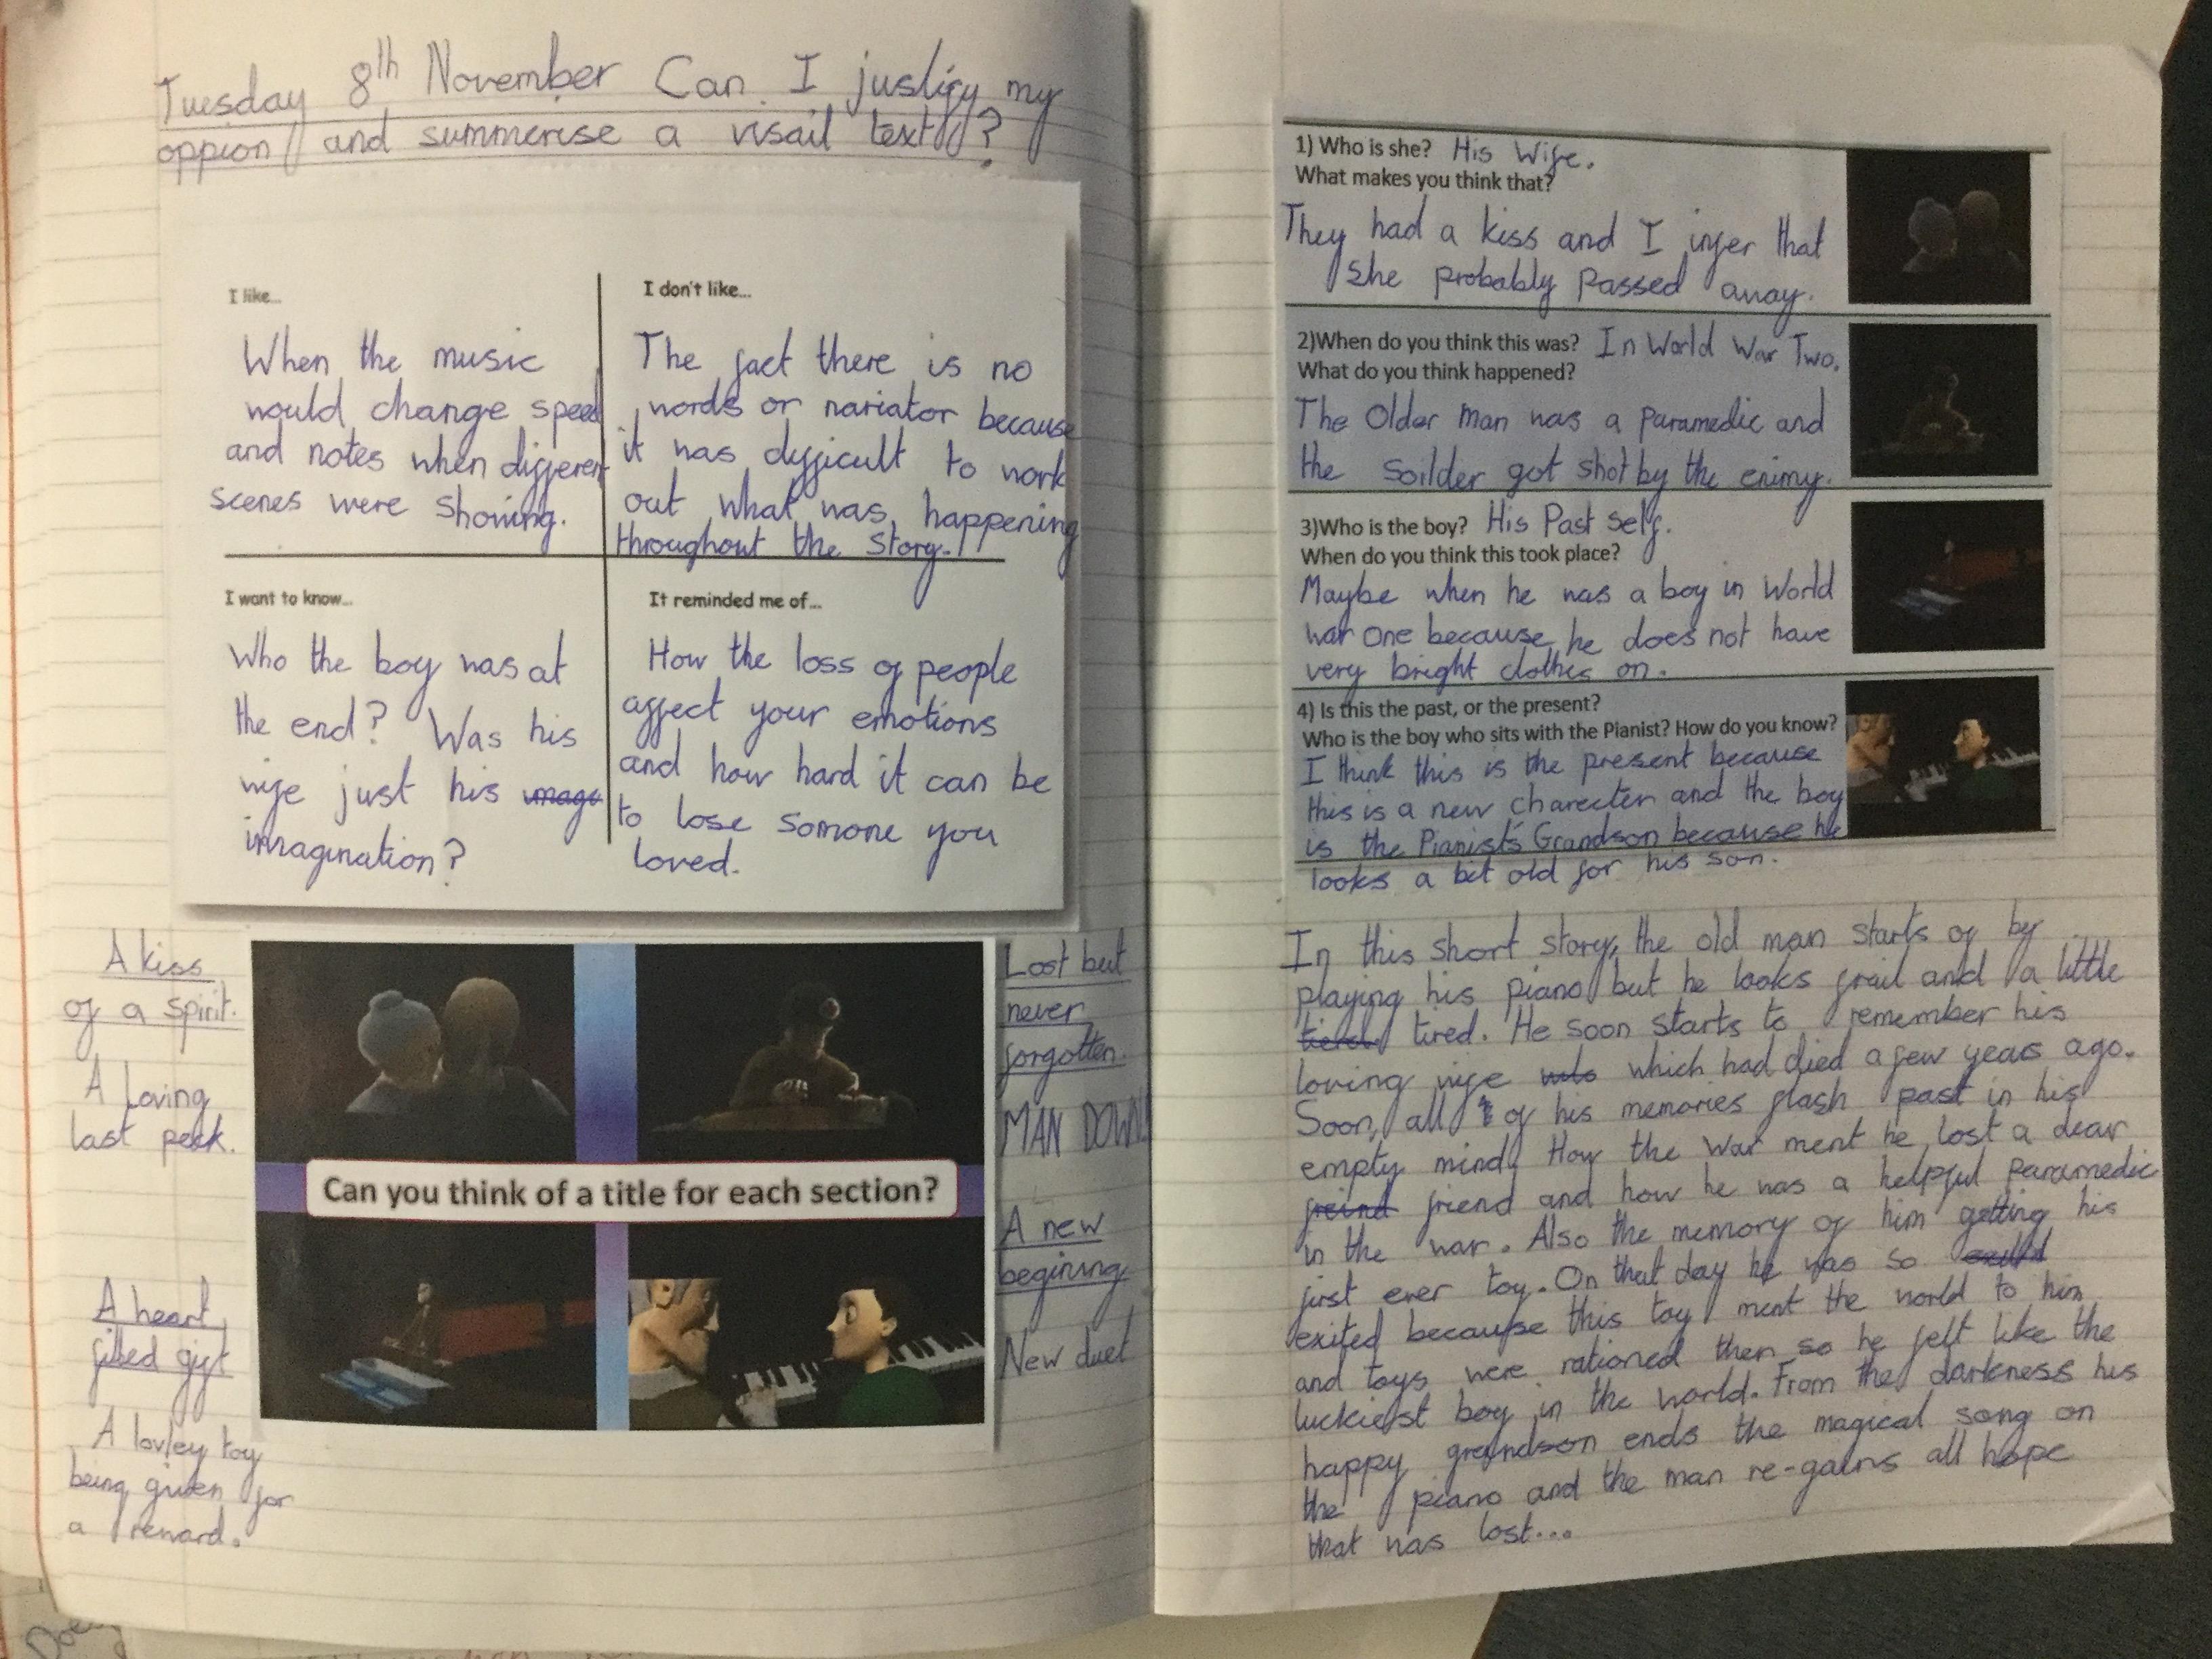 Tuesday 8th November Can I justify my
oppion and summerise a visail text?
I like...
When the music
would change speed
and notes when differen
scenes were showing.
I don't like...
The fact there is no
words or nariator because
it was difficult to work
out what was happening
throughout the story.
I want to know...
Who the boy was at
the end? Was his
wife just his image
imagination?
It reminded me of...
How the loss of people
affect your emotions
and how hard it can be
to lose somone you
loved.
A kiss
of a spirit.
A loving
last peck.
Lost but
never
forgotten.
MAN DOWN!
Can you think of a title for each section?
A heart
filled gift
A lovley toy
being given for
a reward.
A new
begining
New duet
1) Who is she? His Wife.
What makes you think that?
They had a kiss and I infer that
she probably passed away.
2)When do you think this was? In World War Two.
What do you think happened?
The Older man was a paramedic and
the soilder got shot by the enimy.
3)Who is the boy? His Past self.
When do you think this took place?
Maybe when he was a boy in World
war one because he does not have
very bright clothes on.
4) Is this the past, or the present?
Who is the boy who sits with the Pianist? How do you know?
I think this is the present because
this is a new charecter and the boy
is the Pianist's Grandson because he
looks a bit old for his son.
In this short story, the old man starts of by
playing his piano but he looks frail and a little
tired. He soon starts to remember his
loving wife which had died a few years ago.
Soon, all of his memories flash past in his
empty mind. How the war ment he lost a dear
freind friend and how he was a helpful paramedic
in the war. Also the memory of him getting his
first ever toy. On that day he was so
exited because this toy ment the world to him
and toys were rationed then so he felt like the
luckiest boy in the world. From the darkness his
happy grandson ends the magical song on
the piano and the man re-gains all hope
that was lost...